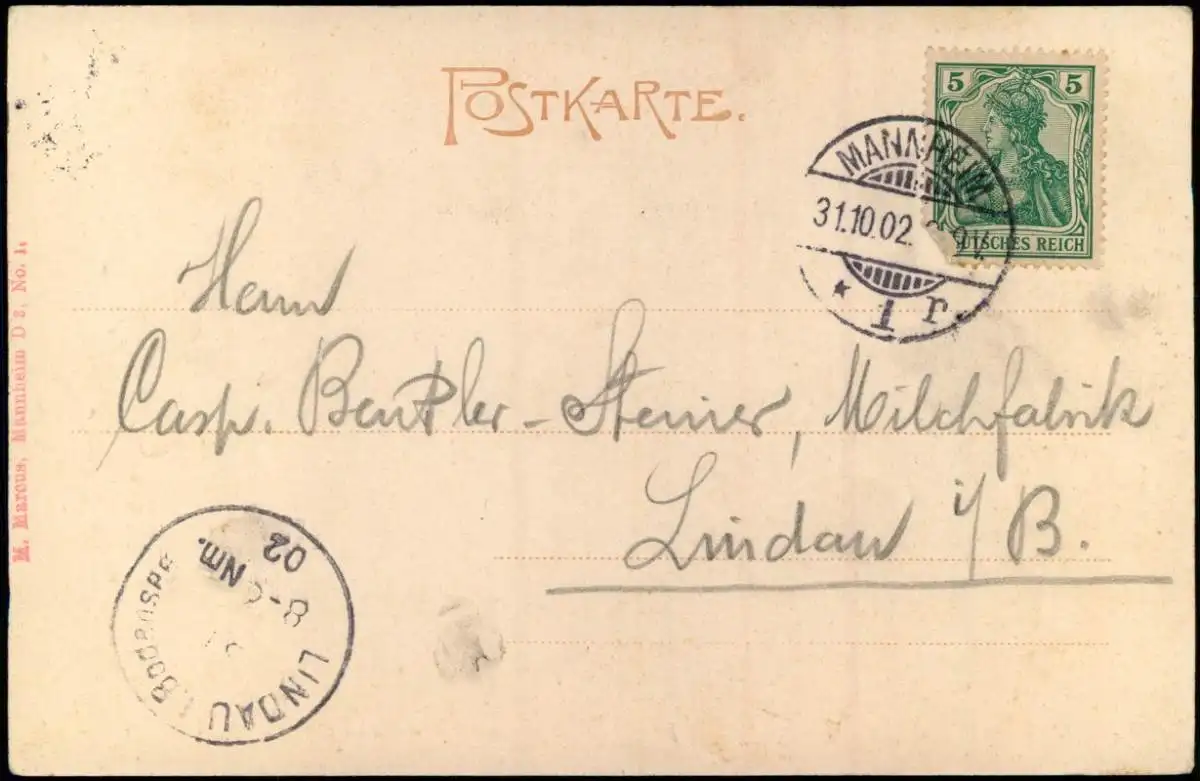 POSTKARTE.
5 5
DEUTSCHES REICH
MANNHEIM
31.10.02.
* 1 r
Herrn
Casp. -Steiner, Milchfabrik
Lindau i/B.
M. Marcus, Mannheim D 2, No. 1.
02
Nm.
8-9
LINDAU